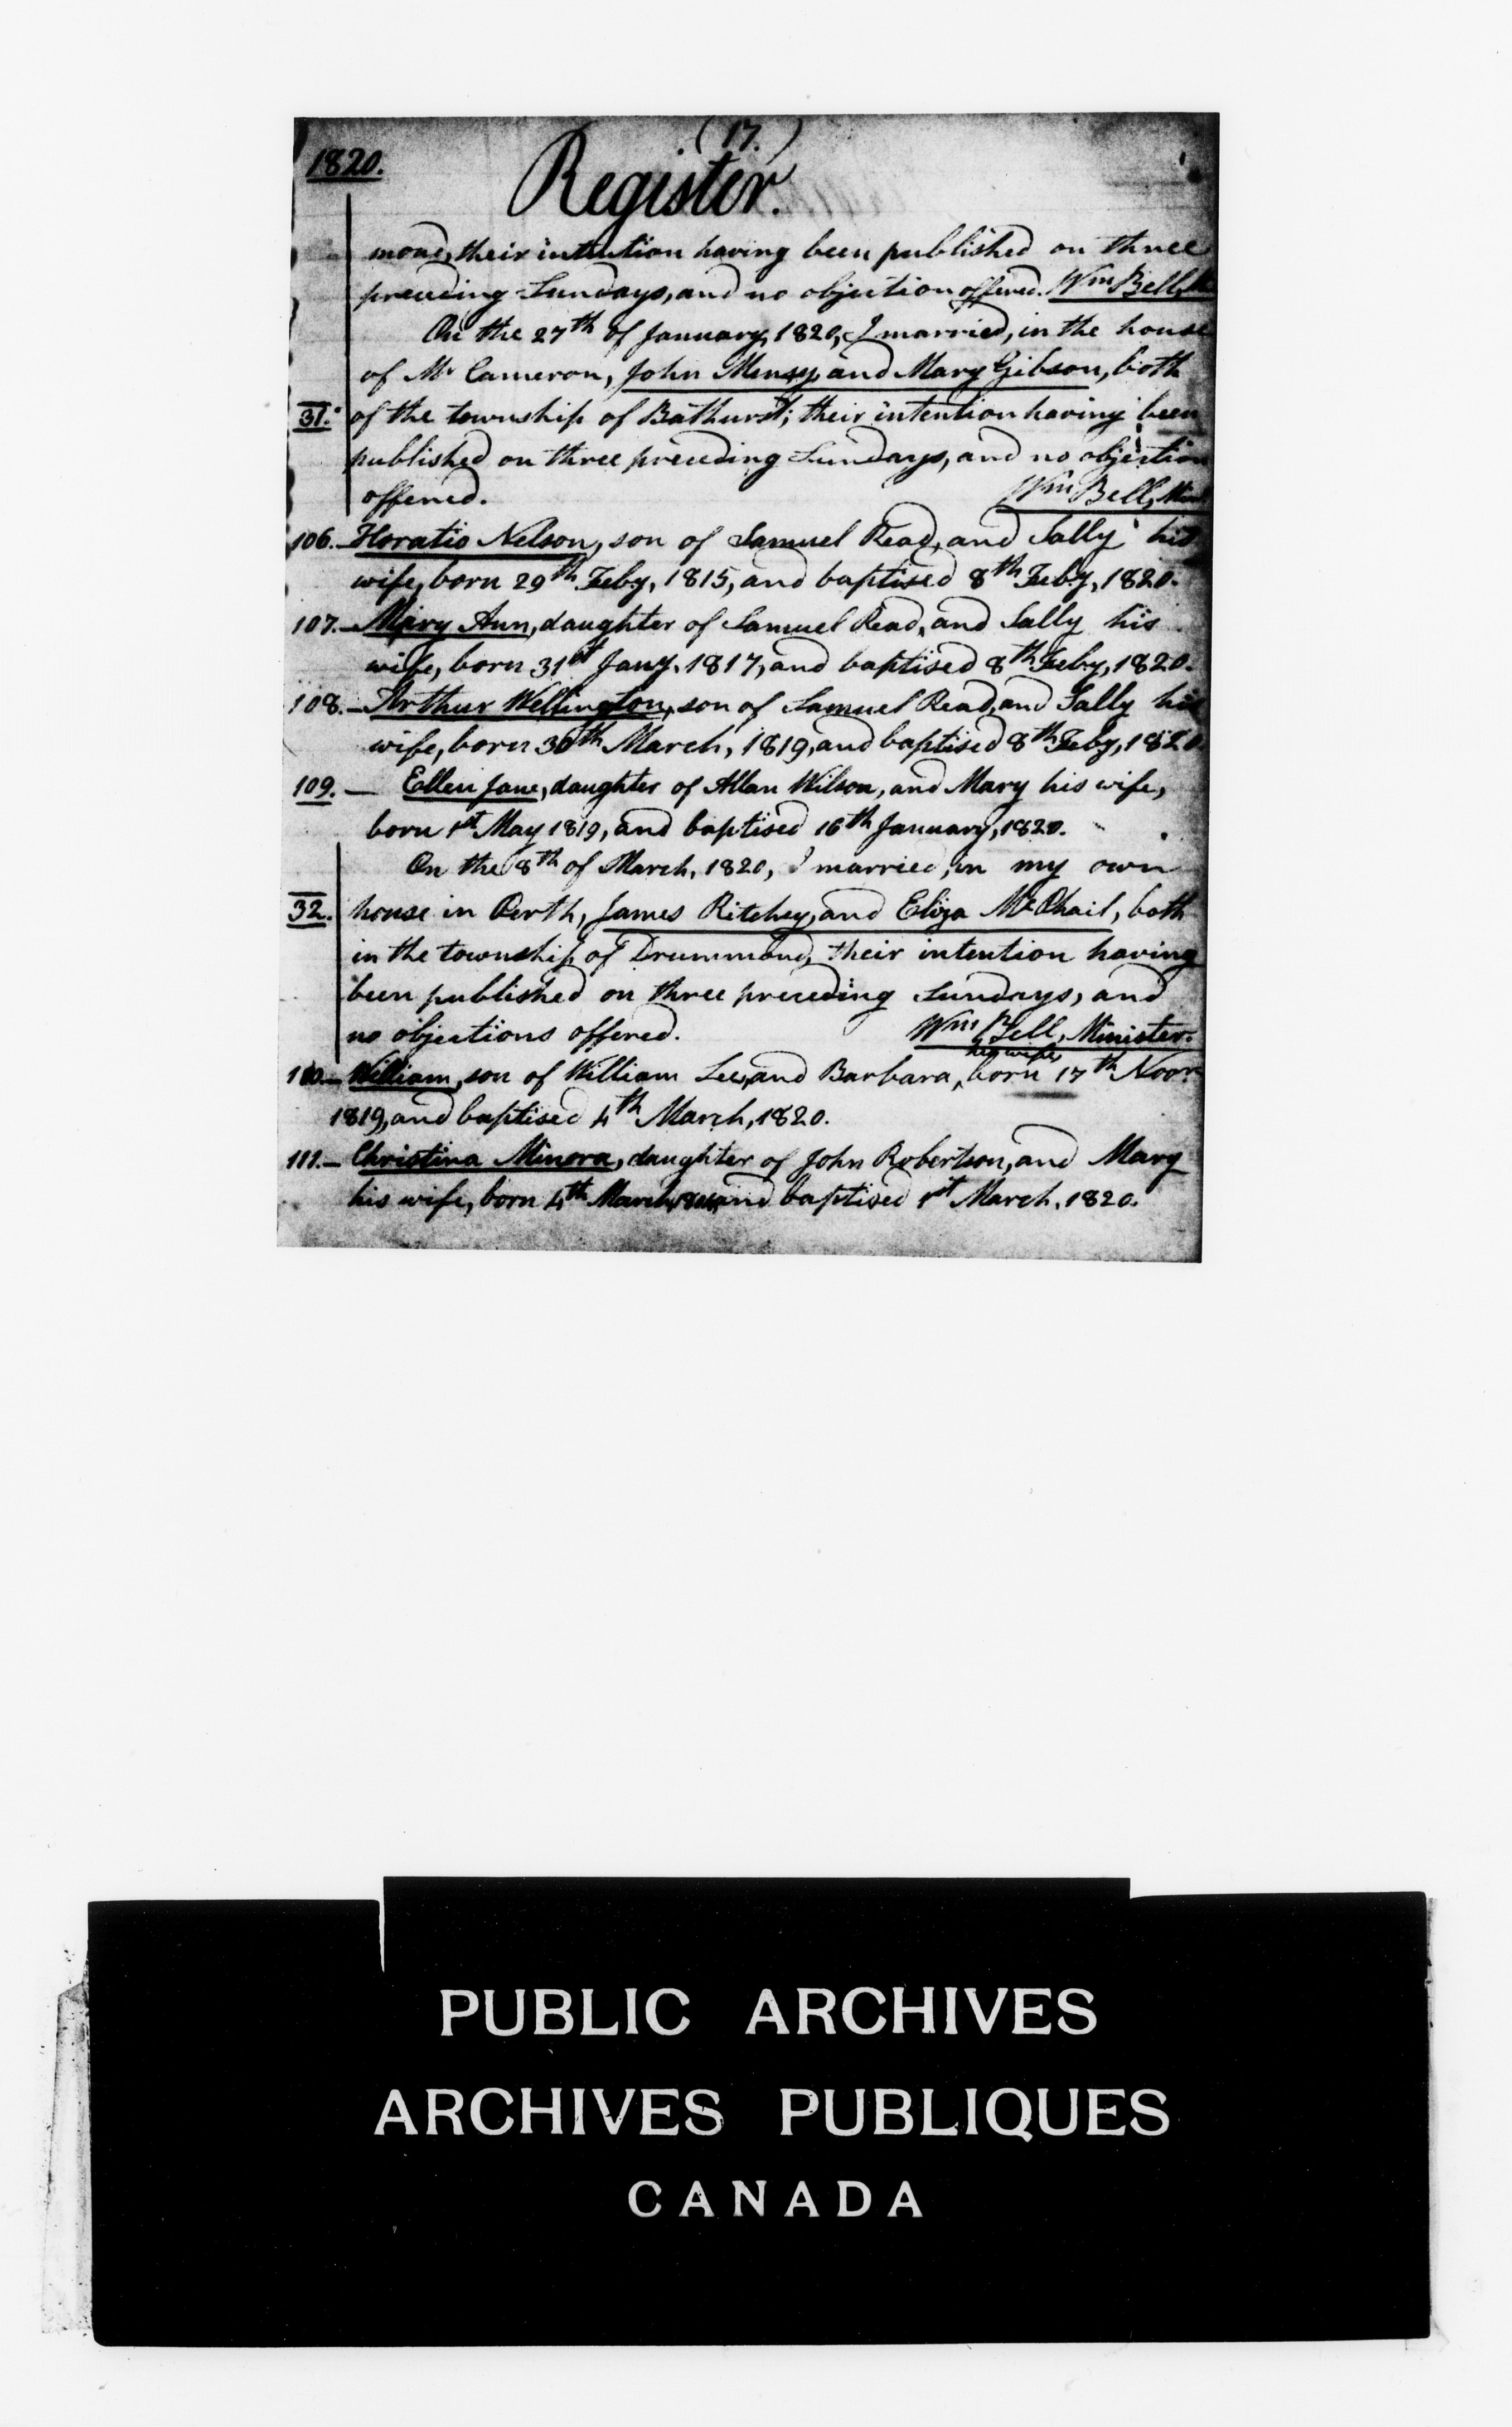 (17.)
1820.
Register.
mond, their intention having been published on three
preceding Sundays, and no objection offered. Wm Bell,
On the 27th of January, 1820, I married, in the house
of Mr Cameron, John and Mary Gibson, both
31. of the township of Bathurst; their intention having been
published on three preceding Sundays, and no objection
offered. Wm Bell, Min
106. Horatio Nelson, son of Samuel Read, and Sally his
wife, born 29th Feby, 1815, and baptised 8th Feby, 1820.
107. Mary Ann, daughter of Samuel Read, and Sally his
wife, born 31st Jany. 1817, and baptised 8th Feby, 1820.
108. Arthur Wellington, son of Samuel Read, and Sally his
wife, born 30th March, 1819, and baptised 8th Feby, 1820
109. — Ellen Jane, daughter of Allan Wilson, and Mary his wife,
born 1st May 1819, and baptised 16th January, 1820.
On the 8th of March, 1820, I married, in my own
32. house in Perth, James Ritchey, and Eliza McPhail, both
in the township of Drummond, their intention having
been published on three preceding Sundays, and
no objections offered. Wm Bell, Minister.
110. — William, son of William Lee, and Barbara, his wife, born 17th Novr
1819, and baptised 4th March, 1820.
111. — Christina Minora, daughter of John Robertson, and Mary
his wife, born 4th March, and baptised 1st March, 1820.
PUBLIC ARCHIVES
ARCHIVES PUBLIQUES
CANADA